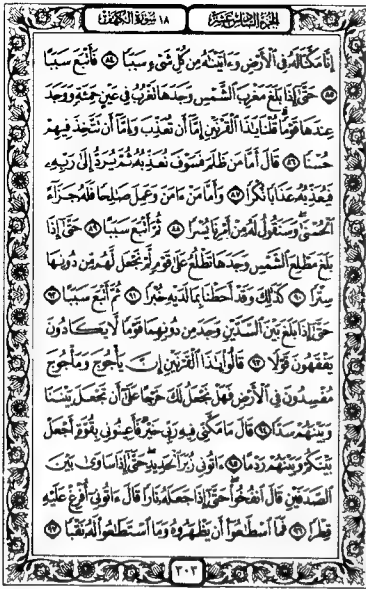 الجزء السادس عشر ١٨ سورة الكهف
إِنَّا مَكَّنَّا لَهُۥ فِي ٱلْأَرْضِ وَءَاتَيْنَٰهُ مِن كُلِّ شَيْءٍ سَبَبًا ٨٤ فَأَتْبَعَ سَبَبًا
٨٥ حَتَّىٰٓ إِذَا بَلَغَ مَغْرِبَ ٱلشَّمْسِ وَجَدَهَا تَغْرُبُ فِي عَيْنٍ حَمِئَةٍ وَوَجَدَ
عِندَهَا قَوْمًا قُلْنَا يَٰذَا ٱلْقَرْنَيْنِ إِمَّآ أَن تُعَذِّبَ وَإِمَّآ أَن تَتَّخِذَ فِيهِمْ
حُسْنًا ٨٦ قَالَ أَمَّا مَن ظَلَمَ فَسَوْفَ نُعَذِّبُهُۥ ثُمَّ يُرَدُّ إِلَىٰ رَبِّهِۦ
فَيُعَذِّبُهُۥ عَذَابًا نُّكْرًا ٨٧ وَأَمَّا مَنْ ءَامَنَ وَعَمِلَ صَٰلِحًا فَلَهُۥ جَزَآءً
ٱلْحُسْنَىٰ وَسَنَقُولُ لَهُۥ مِنْ أَمْرِنَا يُسْرًا ٨٨ ثُمَّ أَتْبَعَ سَبَبًا ٨٩ حَتَّىٰٓ إِذَا
بَلَغَ مَطْلِعَ ٱلشَّمْسِ وَجَدَهَا تَطْلُعُ عَلَىٰ قَوْمٍ لَّمْ نَجْعَل لَّهُم مِّن دُونِهَا
سِتْرًا ٩٠ كَذَٰلِكَ وَقَدْ أَحَطْنَا بِمَا لَدَيْهِ خُبْرًا ٩١ ثُمَّ أَتْبَعَ سَبَبًا ٩٢
حَتَّىٰٓ إِذَا بَلَغَ بَيْنَ ٱلسَّدَّيْنِ وَجَدَ مِن دُونِهِمَا قَوْمًا لَّا يَكَادُونَ
يَفْقَهُونَ قَوْلًا ٩٣ قَالُوا۟ يَٰذَا ٱلْقَرْنَيْنِ إِنَّ يَأْجُوجَ وَمَأْجُوجَ
مُفْسِدُونَ فِي ٱلْأَرْضِ فَهَلْ نَجْعَلُ لَكَ خَرْجًا عَلَىٰٓ أَن تَجْعَلَ بَيْنَنَا
وَبَيْنَهُمْ سَدًّا ٩٤ قَالَ مَا مَكَّنِّي فِيهِ رَبِّي خَيْرٌ فَأَعِينُونِي بِقُوَّةٍ أَجْعَلْ
بَيْنَكُمْ وَبَيْنَهُمْ رَدْمًا ٩٥ ءَاتُونِي زُبَرَ ٱلْحَدِيدِ حَتَّىٰٓ إِذَا سَاوَىٰ بَيْنَ
ٱلصَّدَفَيْنِ قَالَ ٱنفُخُوا۟ حَتَّىٰٓ إِذَا جَعَلَهُۥ نَارًا قَالَ ءَاتُونِيٓ أُفْرِغْ عَلَيْهِ
قِطْرًا ٩٦ فَمَا ٱسْطَٰعُوٓا۟ أَن يَظْهَرُوهُ وَمَا ٱسْتَطَٰعُوا۟ لَهُۥ نَقْبًا ٩٧
٣٠٣